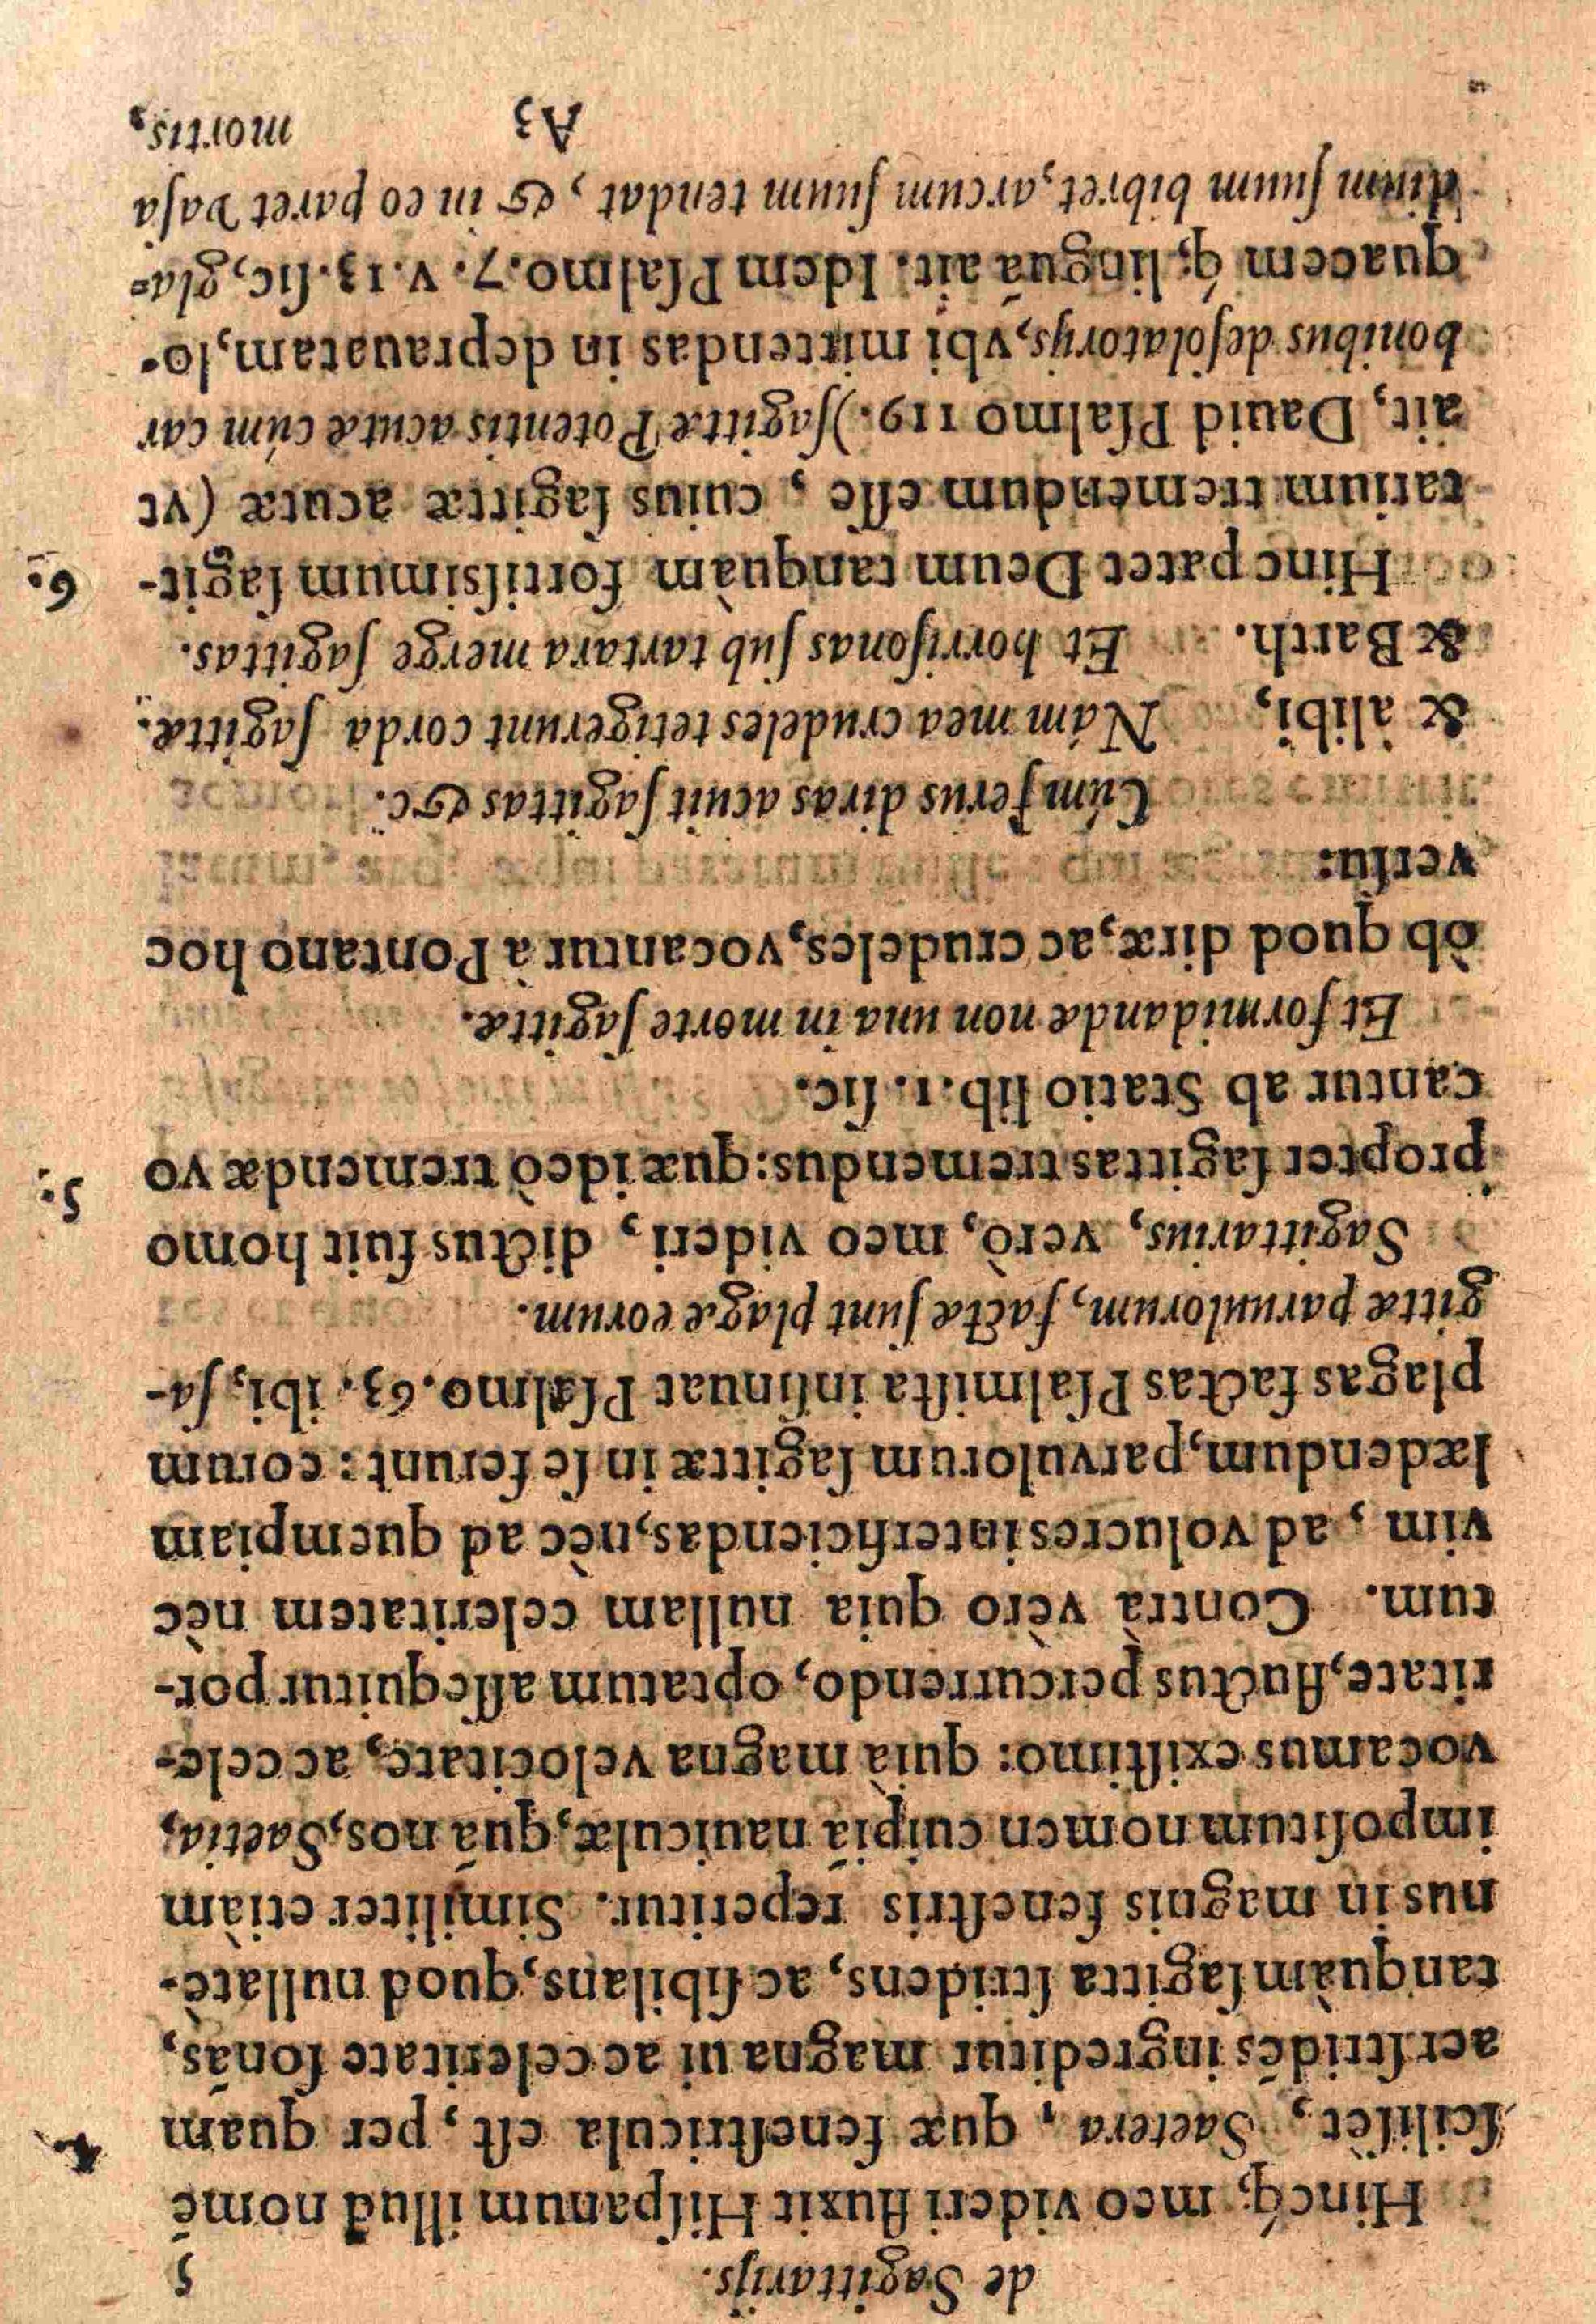 de Sagittarijs. 5
Hincq́; meo videri fluxit Hiſpanum illud nomē
ſciliſèt, Saetera, quæ feneſtricula eſt, per quàm 4.
aerſtridēs ingreditur magna ui ac celeritate ſonãs,
tanquàm ſagitta ſtridens, ac ſibilans, quod nullatè-
nus in magnis feneſtris reperitur. Similiter etiàm
impoſitum nomen cuipiã nauiculæ, quã nos, Saetia,
vocamus exiſtimo: quià magna velocitate, ac cele-
ritate, fluctus percùrrendo, optatum aſſequitur por-
tum. Contrà verò quia nullam celeritatem nèc
vim, ad volucres interficiendas, nèc ad quempiam
lædendum, parvulorum ſagittæ in ſe ferunt: eorum
plagas factas Pſalmiſta inſinuat Pſalmo. 63. ibi, ſa-
gittæ paruulorum, factæ ſunt plagæ eorum.
Sagittarius, verò, meo videri, dictus fuit homo
propter ſagittas tremendus: quæ ideò tremendæ vo 5.
cantur ab Statio lib. 1. ſic.
Et formidandæ non una in morte ſagittæ.
òb quod diræ, ac crudeles, vocantur à Pontano hoc
verſu:
Cúm ferus diras acuit ſagittas &c.
& àlibi, Nám mea crudeles tetigerunt corda ſagittæ.
& Barth. Et horriſonas ſub tartara merge ſagittas.
Hinc patet Deum tanquàm fortiſsimum ſagit- 6.
tarium tremendum eſſe, cuius ſagittæ acutæ (vt
ait, Dauid Pſalmo 119.) ſagittæ Potentis acutæ cúm car
bonibus deſolatorys, vbi mittendas in deprauatam, lo-
quacem q́; linguã ait. Idem Pſalmo. 7. v. 13. ſic, gla=
dium ſuum bibret, arcum ſuum tendat, & in eo paret vaſa
A3 mortis,